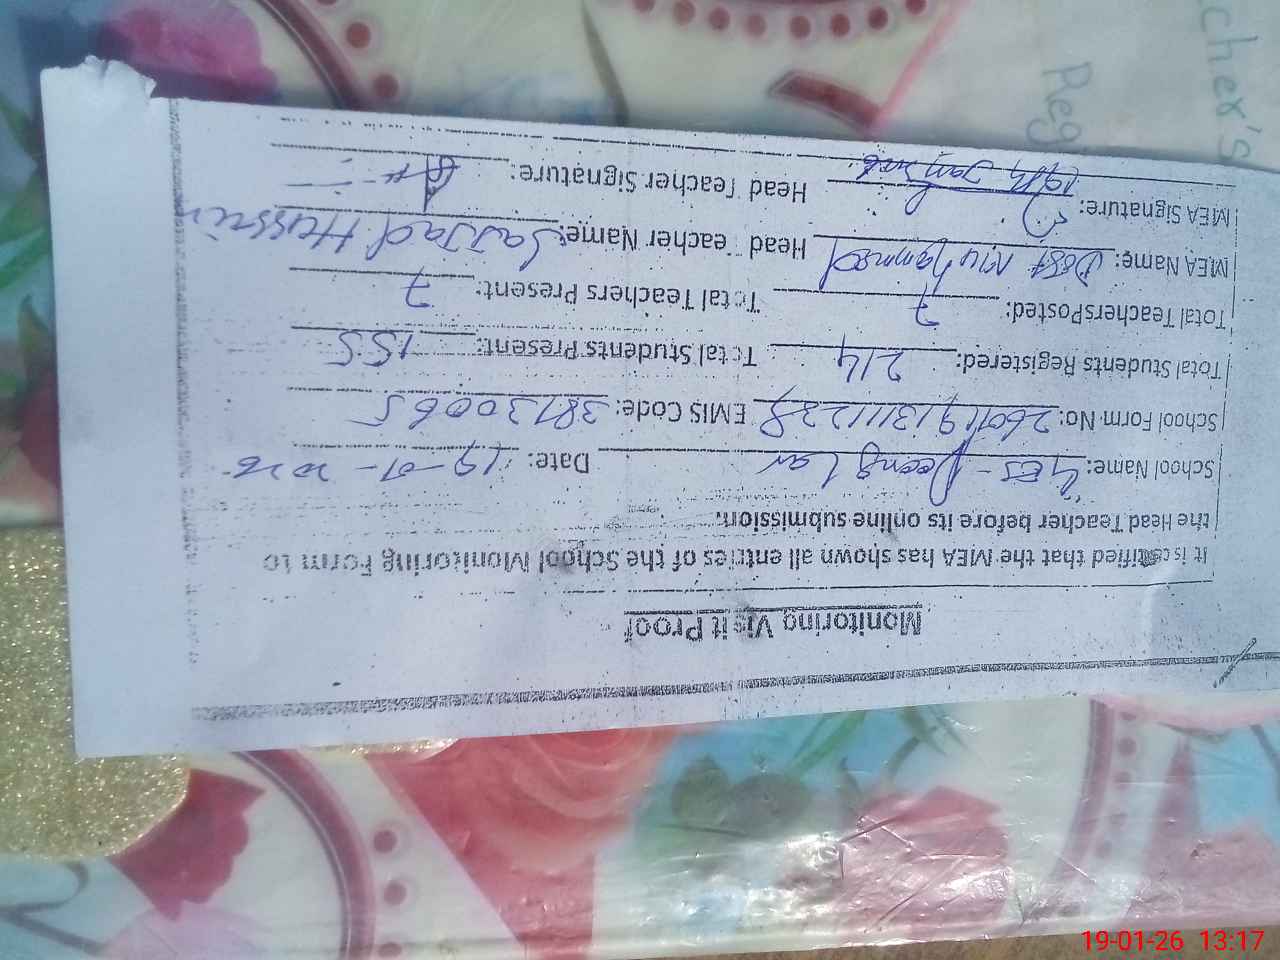 Monitoring Visit Proof
It is certified that the MEA has shown all entries of the School Monitoring Form to
the Head Teacher before its online submission.
School Name: Lar Date: 19-01-2026
School Form No: EMIS Code: 38130065
Total Students Registered: 214 Total Students Present: 155
Total Teachers Posted: 7 Total Teachers Present: 7
MEA Name: Dost Muhammad Head Teacher Name: Sajjad Hussain
MEA Signature: Head Teacher Signature:
19-01-26 13:17